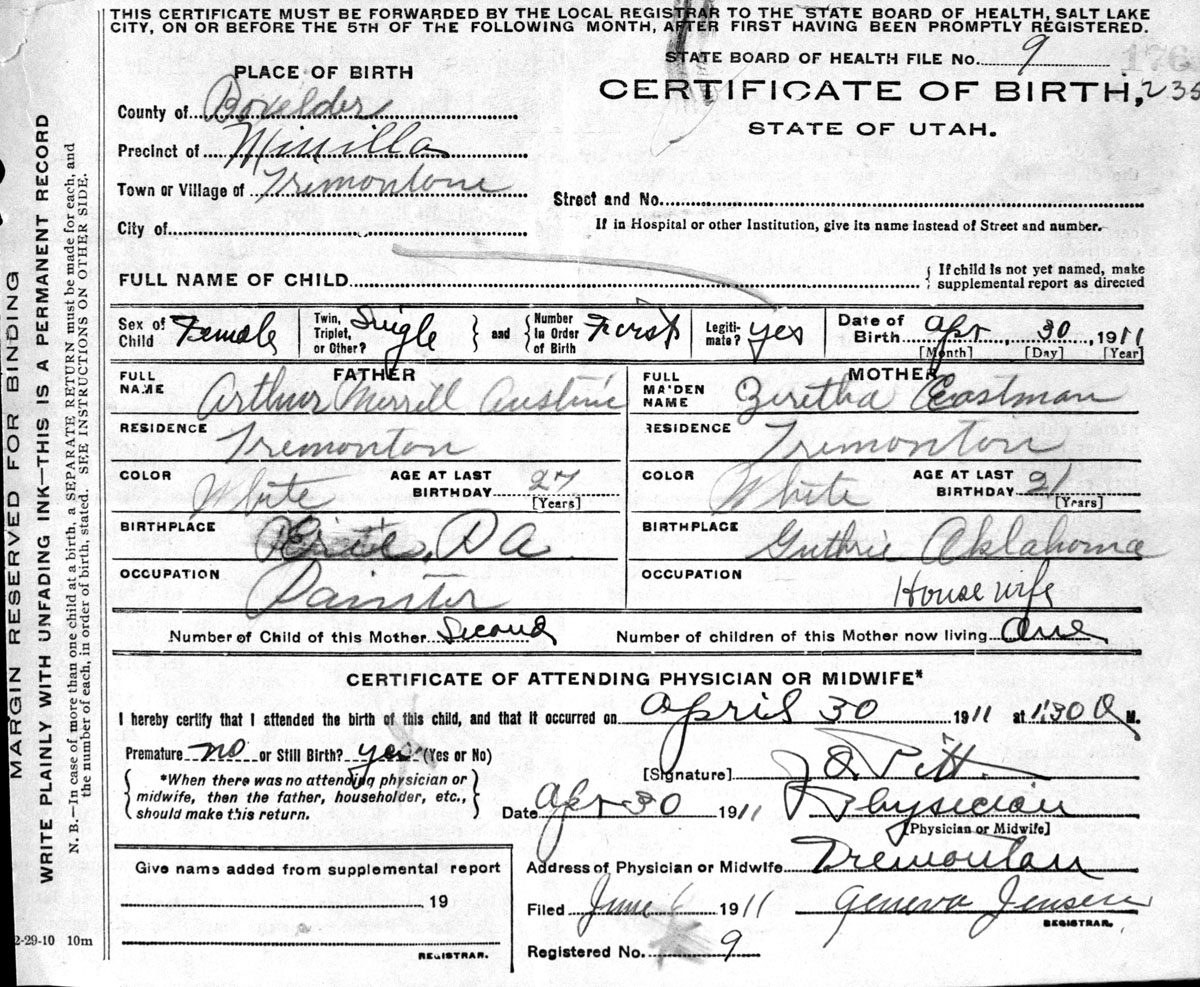 THIS CERTIFICATE MUST BE FORWARDED BY THE LOCAL REGISTRAR TO THE STATE BOARD OF HEALTH, SALT LAKE
CITY, ON OR BEFORE THE 5TH OF THE FOLLOWING MONTH, AFTER FIRST HAVING BEEN PROMPTLY REGISTERED.
STATE BOARD OF HEALTH FILE No. 9
176
PLACE OF BIRTH
CERTIFICATE OF BIRTH, 235
STATE OF UTAH.
County of Boxelder
Precinct of
Town or Village of Tremontone
Street and No.
City of
If in Hospital or other Institution, give its name instead of Street and number.
FULL NAME OF CHILD
{ If child is not yet named, make
supplemental report as directed
Sex of Child Female
Twin, Triplet, or Other? Single } and { Number In Order of Birth First
Legiti-mate? yes
Date of Birth Apr 30 1911
[Month] [Day] [Year]
FATHER
MOTHER
FULL NAME Arthur Merrill Austin
FULL MAIDEN NAME Zeretha Eastman
RESIDENCE Tremonton
RESIDENCE Tremonton
COLOR White AGE AT LAST BIRTHDAY 27 [Years]
COLOR White AGE AT LAST BIRTHDAY 21 [Years]
BIRTHPLACE Erie, Pa
BIRTHPLACE Guthrie Aklahoma
OCCUPATION Painter
OCCUPATION House wife
Number of Child of this Mother Second
Number of children of this Mother now living One
CERTIFICATE OF ATTENDING PHYSICIAN OR MIDWIFE*
I hereby certify that I attended the birth of this child, and that it occurred on April 30 1911 at 1:30 A M.
Premature no or Still Birth? yes (Yes or No)
[Signature]
{ *When there was no attending physician or
midwife, then the father, householder, etc.,
should make this return. }
Date Apr 30 1911 Physician
[Physician or Midwife]
Address of Physician or Midwife Tremonton
Give name added from supplemental report
19
REGISTRAR.
Filed June 6 1911 Geneva Jensen
REGISTRAR.
Registered No. 9
2-29-10 10m
MARGIN RESERVED FOR BINDING
WRITE PLAINLY WITH UNFADING INK—THIS IS A PERMANENT RECORD
N. B.—In case of more than one child at a birth, a SEPARATE RETURN must be made for each, and
the number of each, in order of birth, stated. SEE INSTRUCTIONS ON OTHER SIDE.